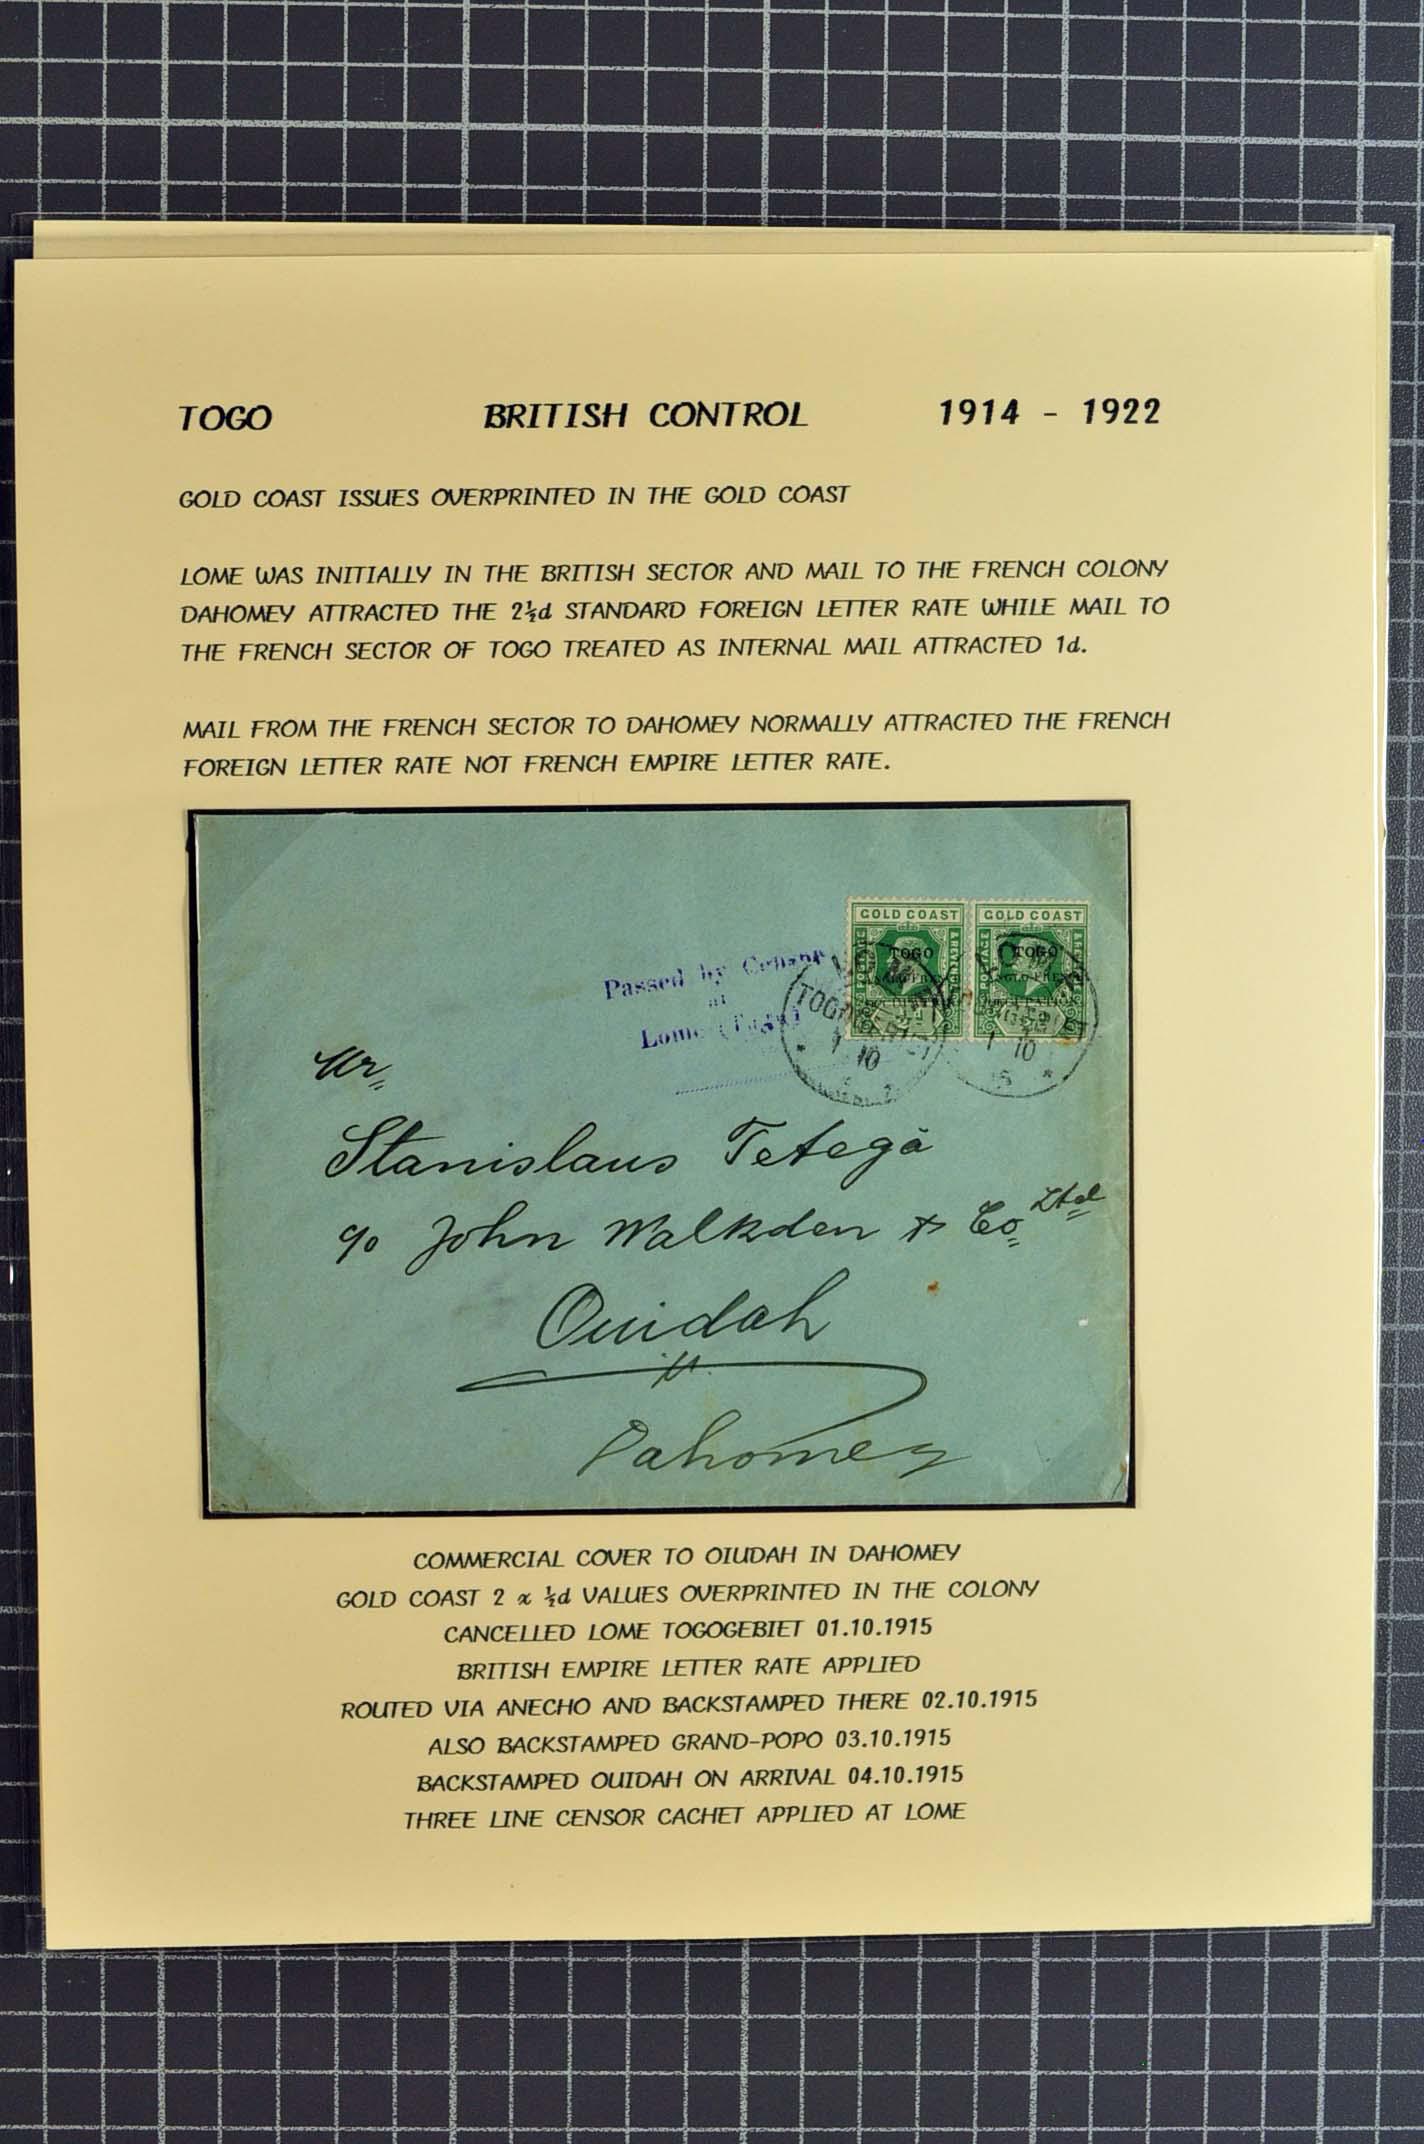 TOGO BRITISH CONTROL 1914 - 1922
GOLD COAST ISSUES OVERPRINTED IN THE GOLD COAST
LOME WAS INITIALLY IN THE BRITISH SECTOR AND MAIL TO THE FRENCH COLONY
DAHOMEY ATTRACTED THE 2½d STANDARD FOREIGN LETTER RATE WHILE MAIL TO
THE FRENCH SECTOR OF TOGO TREATED AS INTERNAL MAIL ATTRACTED 1d.
MAIL FROM THE FRENCH SECTOR TO DAHOMEY NORMALLY ATTRACTED THE FRENCH
FOREIGN LETTER RATE NOT FRENCH EMPIRE LETTER RATE.
GOLD COAST GOLD COAST
TOGO TOGO
Passed by Censor
at
Lome (Togo)
1 10
1 10
Mr,
Stanislaus Tetegà
c/o John Walkden & Co Ltd
Ouidah
Dahomey
COMMERCIAL COVER TO OIUDAH IN DAHOMEY
GOLD COAST 2 x ½d VALUES OVERPRINTED IN THE COLONY
CANCELLED LOME TOGOGEBIET 01.10.1915
BRITISH EMPIRE LETTER RATE APPLIED
ROUTED VIA ANECHO AND BACKSTAMPED THERE 02.10.1915
ALSO BACKSTAMPED GRAND-POPO 03.10.1915
BACKSTAMPED OUIDAH ON ARRIVAL 04.10.1915
THREE LINE CENSOR CACHET APPLIED AT LOME